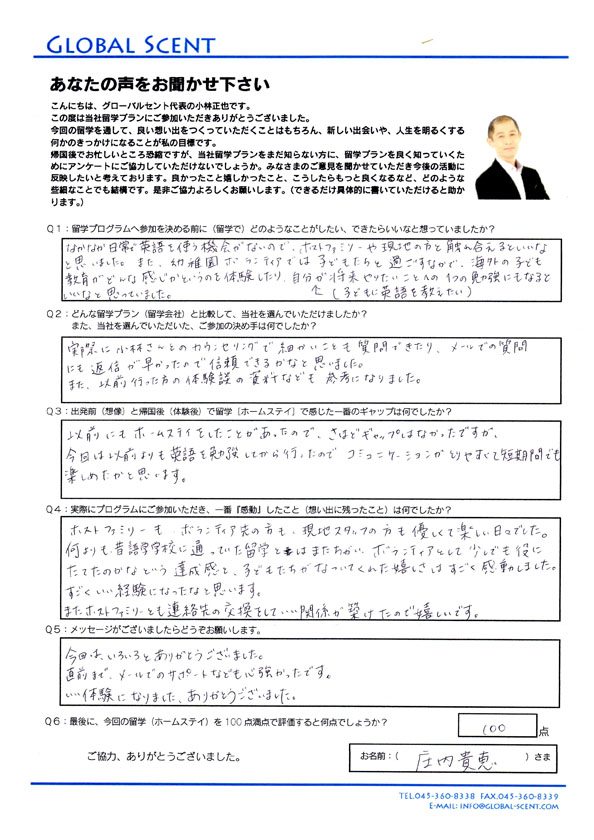 GLOBAL SCENT
あなたの声をお聞かせ下さい
こんにちは、グローバルセント代表の小林正也です。
この度は当社留学プランにご参加いただきありがとうございました。
今回の留学を通して、良い想い出をつくっていただくことはもちろん、新しい出会いや、人生を明るくする
何かのきっかけになることが私の目標です。
帰国後でお忙しいところ恐縮ですが、当社留学プランをまだ知らない方に、留学プランを良く知っていくた
めにアンケートにご協力していただけないでしょうか。みなさまのご意見を聞かせていただき今後の活動に
反映したいと考えております。良かったこと嬉しかったこと、こうしたらもっと良くなるなど、どのような
些細なことでも結構です。是非ご協力よろしくお願いします。（できるだけ具体的に書いていただけると助か
ります。）
Q1：留学プログラムへ参加を決める前に（留学で）どのようなことがしたい、できたらいいなと想っていましたか？
なかなか日常で英語を使う機会がないので、ホストファミリーや現地の方と触れ合えるといいな
と思いました。また、幼稚園ボランティアでは子どもたちと過ごすなかで、海外の子ども
教育がどんな感じかというのを体験したり、自分が将来やりたいことへの1つの勉強にもなると
いいなと思っていました。
（子どもに英語を教えたい）
Q2：どんな留学プラン（留学会社）と比較して、当社を選んでいただけましたか？
また、当社を選んでいただいた、ご参加の決め手は何でしたか？
実際に小林さんとのカウンセリングで細かいことも質問できたり、メールでの質問
にも返信が早かったので信頼できるかなと思いました。
また、以前行った方の体験談の資料なども参考になりました。
Q3：出発前（想像）と帰国後（体験後）で留学［ホームステイ］で感じた一番のギャップは何でしたか？
以前にもホームステイをしたことがあったので、さほどギャップはなかったですが、
今回は以前よりも英語を勉強してから行ったのでコミュニケーションがとりやすくて短期間でも
楽しめたかと思います。
Q4：実際にプログラムにご参加いただき、一番『感動』したこと（想い出に残ったこと）は何でしたか？
ホストファミリーも、ボランティア先の方も、現地スタッフの方も優しくて楽しい日々でした。
何よりも昔語学学校に通っていた留学とはまたちがい、ボランティアとして少しでも役に
たてたのかなという達成感と、子どもたちがなついてくれた嬉しさはすごく感動しました。
すごくいい経験になったなと思います。
またホストファミリーとも連絡先の交換をしていい関係が築けたので嬉しいです。
Q5：メッセージがございましたらどうぞお願いします。
今回は、いろいろとありがとうございました。
直前まで、メールでのサポートなども心強かったです。
いい体験になりました、ありがとうございました。
Q6：最後に、今回の留学（ホームステイ）を100点満点で評価すると何点でしょうか？
100 点
ご協力、ありがとうございました。
お名前：（ 庄内貴恵 ）さま
TEL.045-360-8338 FAX.045-360-8339
E-MAIL: INFO@GLOBAL-SCENT.COM